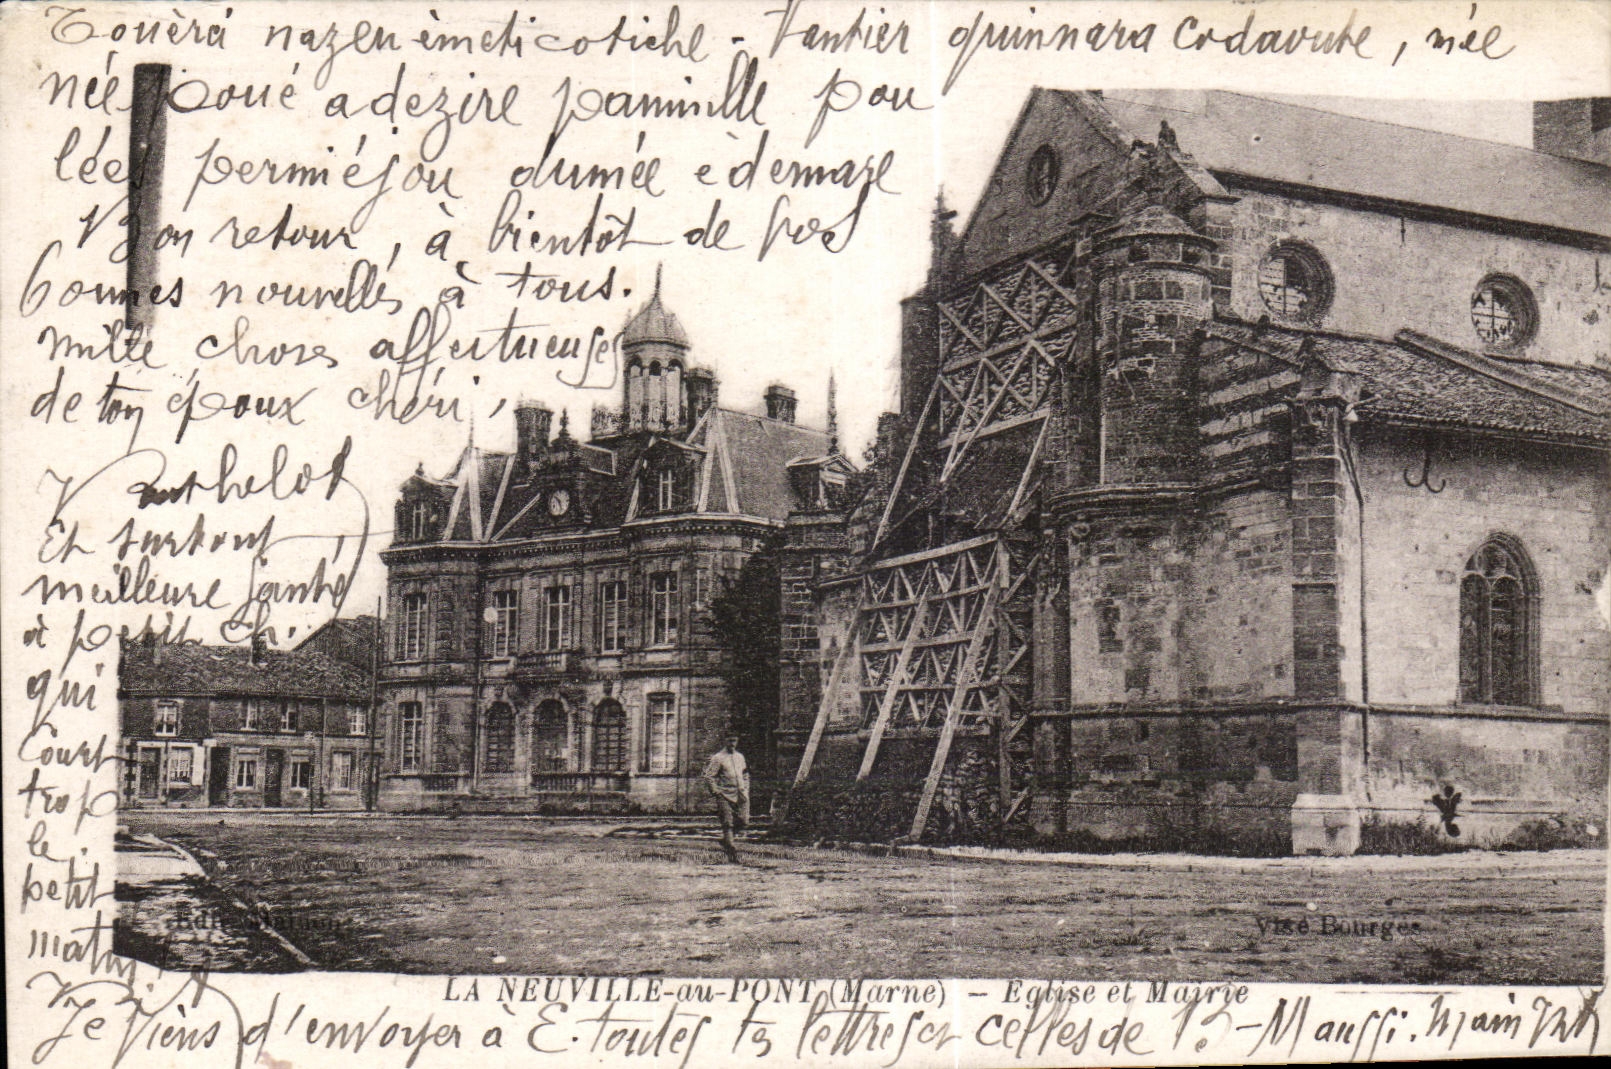 Touèrà nazeu èmeti cotiche - Vantier quinnara Codavute, née
née poué a dezire pamille pou
lée permiéjou dumée è demare
Bon retour, à bientôt de vos
bonnes nouvelles à tous.
Mille choses affectueuses
de ton époux chéri,
Barthelot
Et surtout,
meilleure santé
à petit ch.
qui
court
trop
le
petit
matin
LA NEUVILLE-au-PONT (Marne) - Eglise et Mairie
Visé Bourges
Je viens d'envoyer à E. toutes tes lettres et celles de B-M aussi.